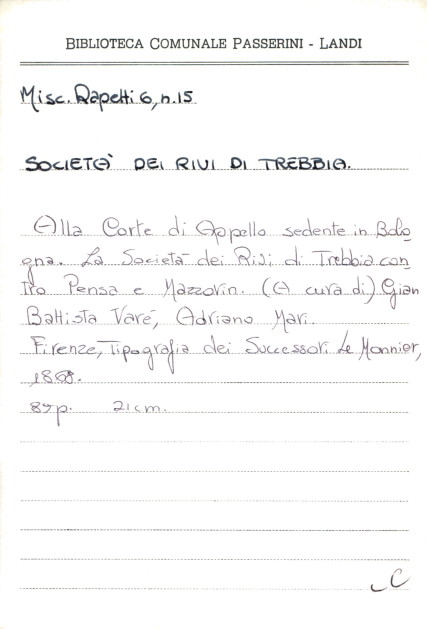 BIBLIOTECA COMUNALE PASSERINI - LANDI
Misc. Rapetti 6, n.15
SOCIETA' DEI RIVI DI TREBBIA.
Alla Corte di Appello sedente in Bolo
gna. La Società dei Rivi di Trebbia con
tro Pensa e Mazzorin. (A cura di) Gian
Battista Varé, Adriano Mari.
Firenze, Tipografia dei Successori Le Monnier,
1868.
p. 21cm.
C